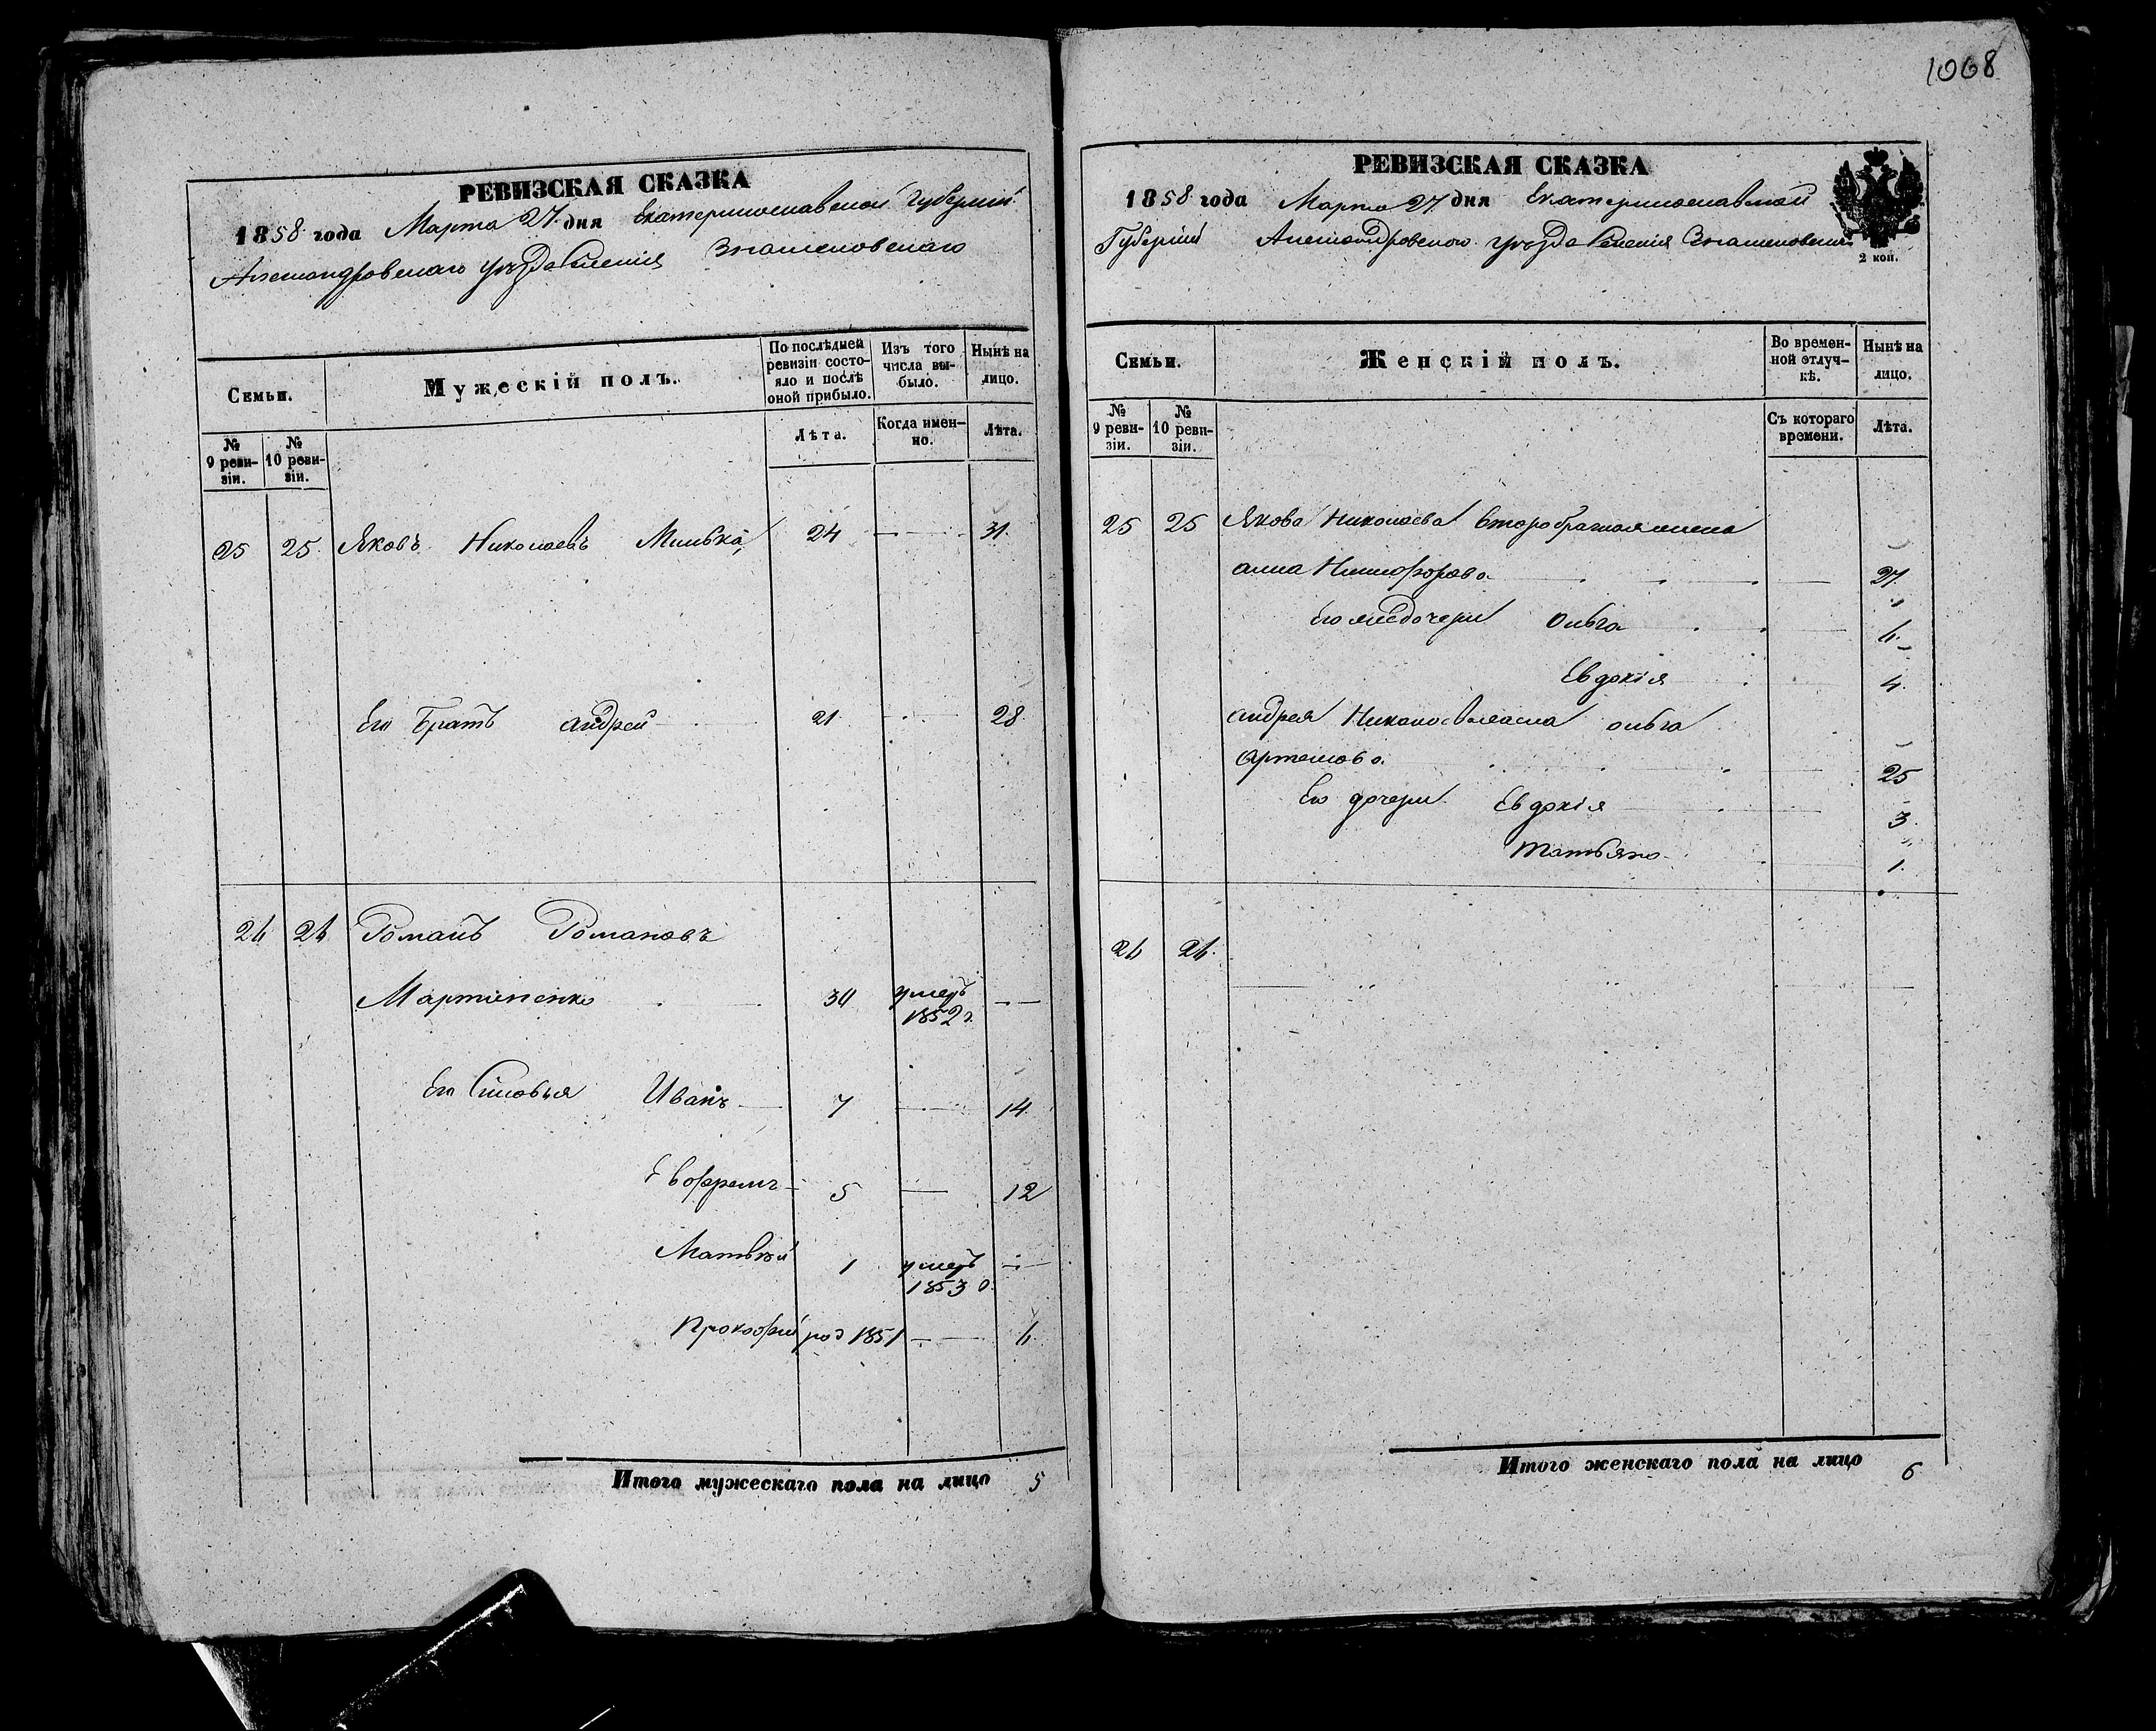 1068
РЕВИЗСКАЯ СКАЗКА
1858 года Марта 27 дня Екатеринославской Губерніи
Александровскаго уезда Селенія Знаменовскаго
Семьи.
Мужескій полъ.
По послѣдней ревизіи состояло и послѣ оной прибыло.
Изъ того числа выбыло.
Нынѣ на лицо.
№ 9 ревизіи.
№ 10 ревизіи.
Лѣта.
Когда именно.
Лѣта.
25 25 Яковъ Николаевъ Милька 24 — 31
Его Братъ Андрей 21 — 28
26 26 Романъ Романовъ
Мартиненко 34 умеръ 1852 г. —
Его Сыновья Иванъ 7 — 14
Евофремъ 5 — 12
Матвѣй 1 умеръ 1853 —
Прокофій род 1851 — 6
Итого мужескаго пола на лицо 5
РЕВИЗСКАЯ СКАЗКА
1858 года Марта 27 дня Екатеринославской
Губерніи Александровскаго уезда Селенія Знаменовскаго
2 коп.
Семьи.
Женскій полъ.
Во временной отлучкѣ.
Нынѣ на лицо.
№ 9 ревизіи.
№ 10 ревизіи.
Съ котораго времени.
Лѣта.
25 25 Якова Николаева второбрачная жена
Анна Никифорова — 27
Его же дочери Ольга — 6
Евдокія 4
Андрея Николаева жена Ольга
Артемова — 25
Его дочери Евдокія — 3
Татьяна 1
26 26
— " " —
Итого женскаго пола на лицо 6